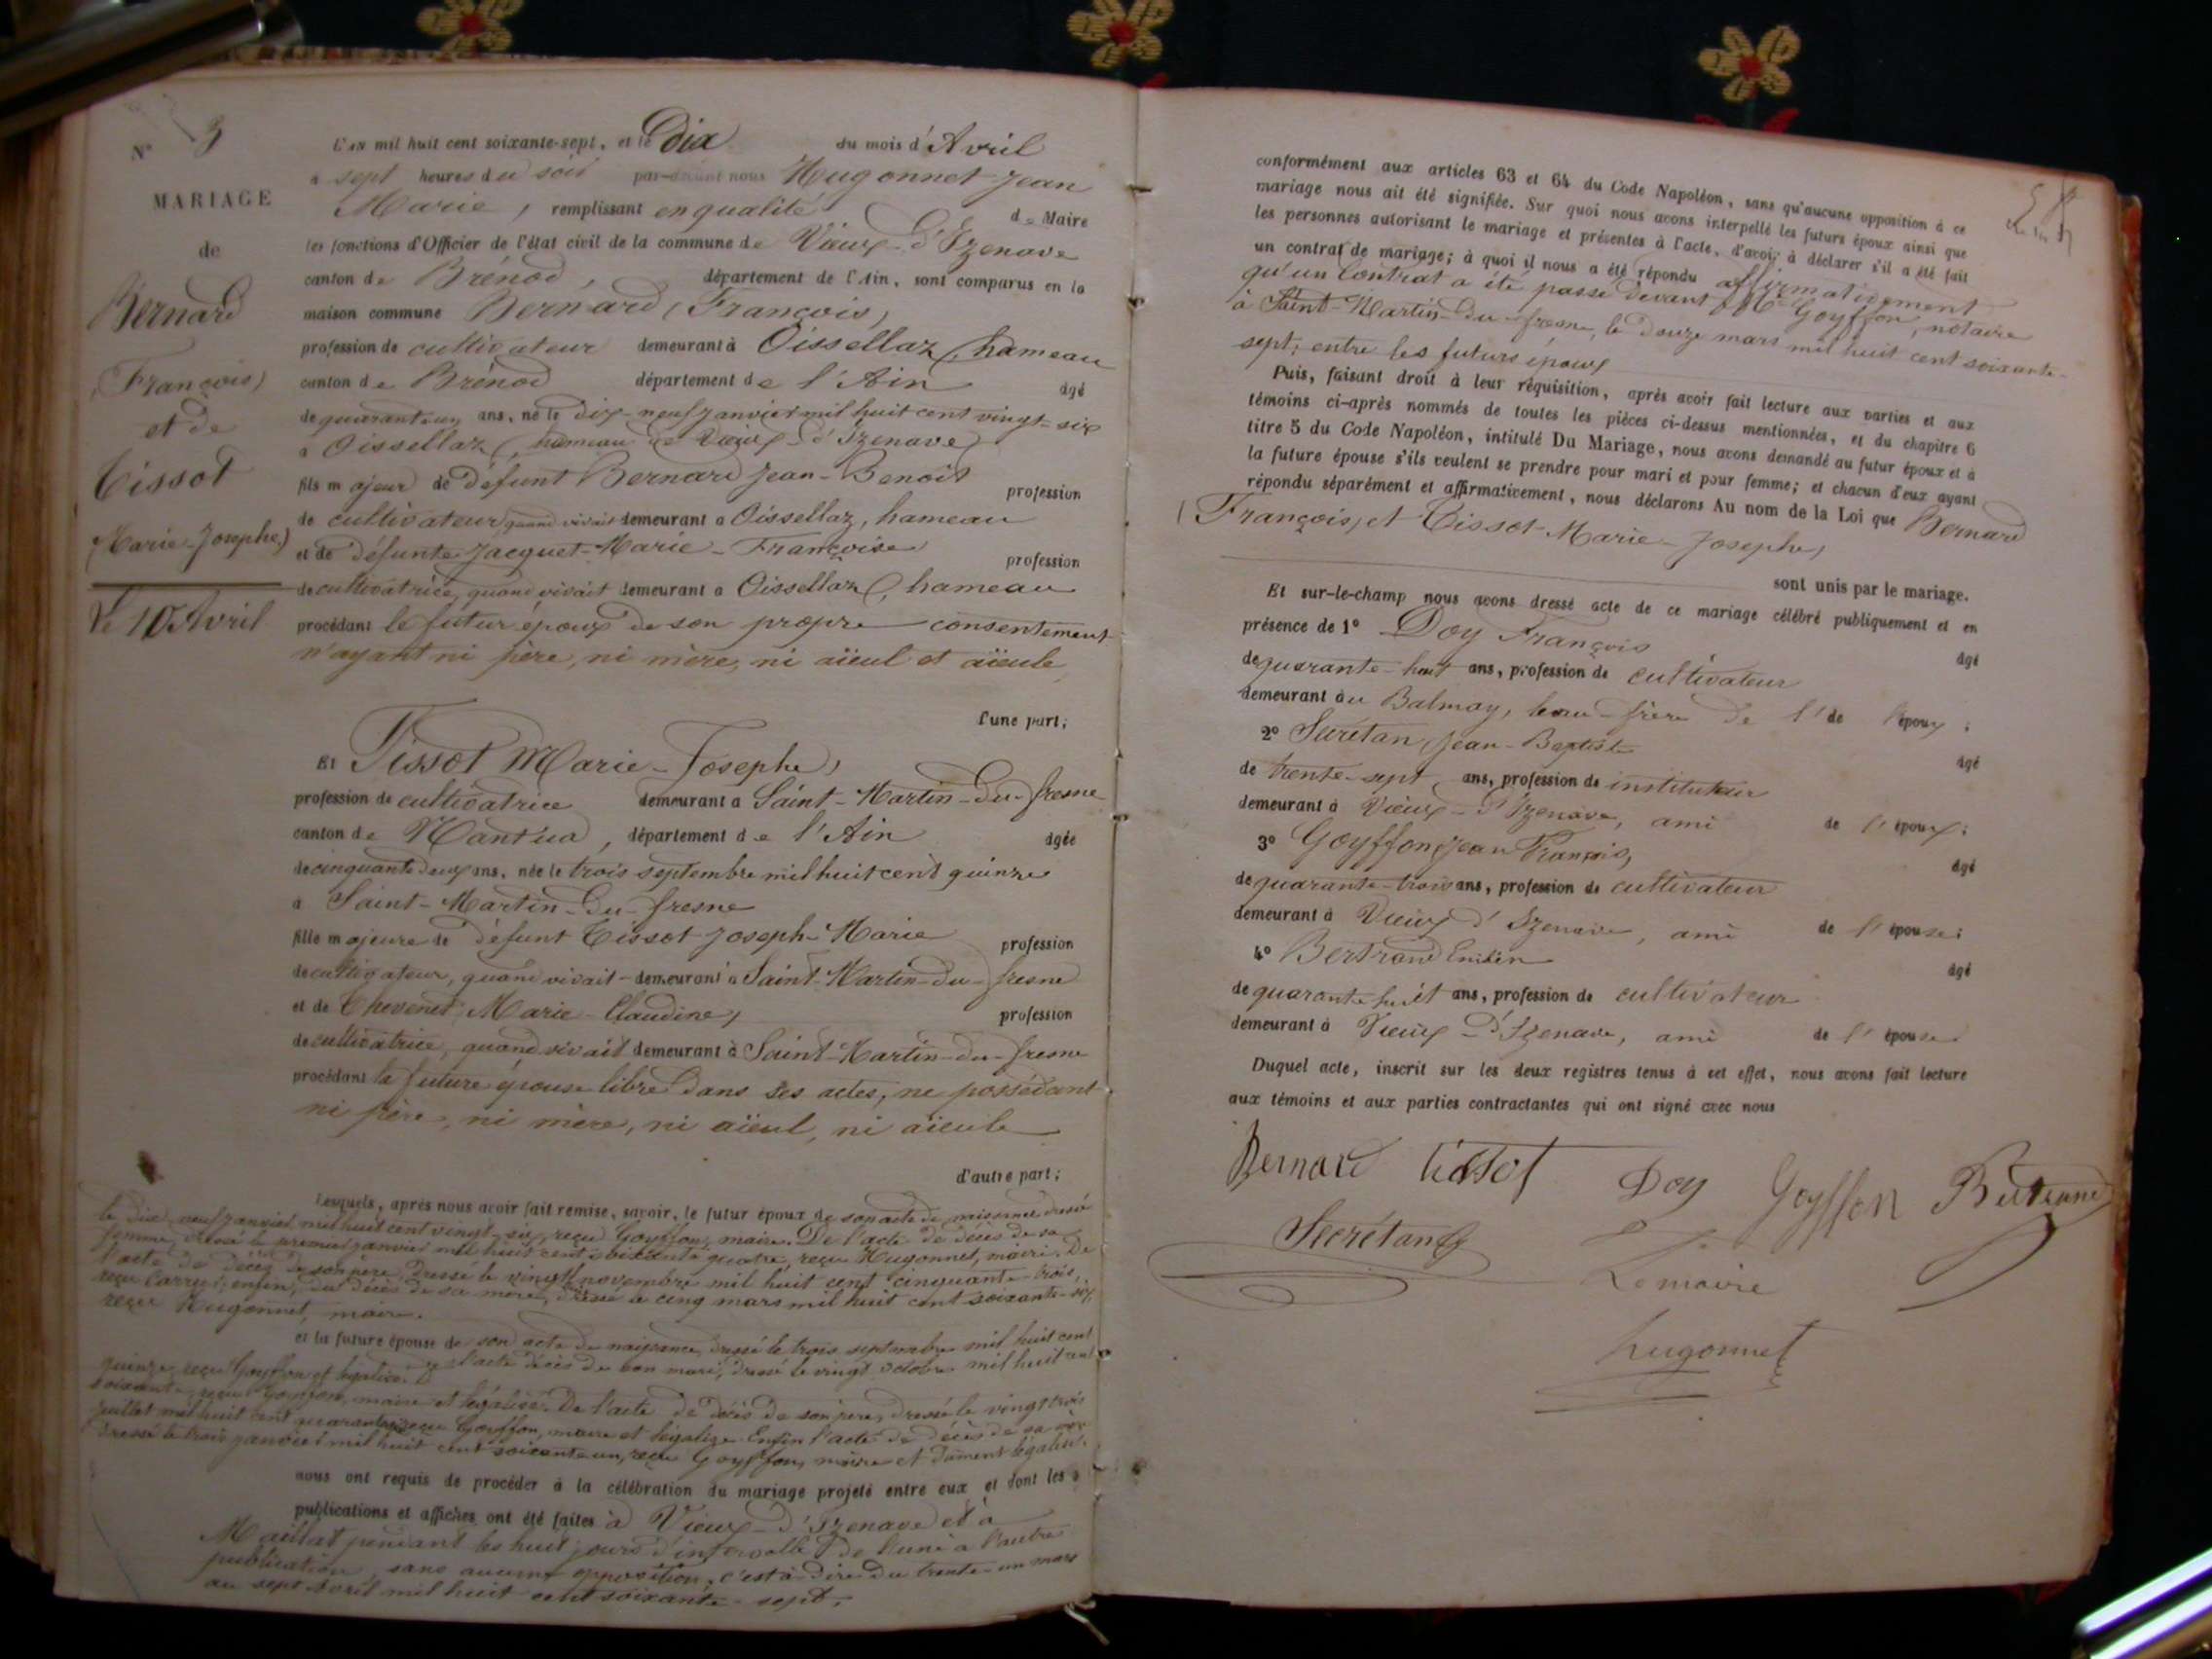 N° 3
MARIAGE
de
Bernard
(François)
et de
Tissot
(Marie-Josephe)
Le 10 Avril
L'AN mil huit cent soixante-sept, et le Dix du mois d'Avril
à sept heures du soir par-devant nous Hugonnet Jean
Marie, remplissant en qualité de Maire
les fonctions d'Officier de l'état civil de la commune de Vieux-d'Izenave
canton de Brénod, département de l'Ain, sont comparus en la
maison commune Bernard (François)
profession de cultivateur demeurant à Oissellaz (hameau
canton de Brénod département de l'Ain âgé
de quarante-un ans, né le dix-neuf janvier mil huit cent vingt-six
à Oissellaz (hameau de Vieux-d'Izenave)
fils majeur de défunt Bernard Jean-Benoit profession
de cultivateur quand vivait demeurant à Oissellaz, hameau
et de défunte Jacquet-Marie-Françoise profession
de cultivatrice, quand vivait demeurant à Oissellaz (hameau
procédant le futur époux de son propre consentement
n'ayant ni père, ni mère, ni aïeul et aïeule
d'une part;
Et Tissot Marie-Josephe)
profession de cultivatrice demeurant à Saint-Martin-du-fresne
canton de Nantua, département de l'Ain âgée
de cinquante deux ans, née le trois septembre mil huit cent quinze
à Saint-Martin-du-fresne
fille majeure de défunt Tissot Joseph-Marie profession
de cultivateur, quand vivait demeurant à Saint-Martin-du-fresne
et de Chevenet Marie-Claudine, profession
de cultivatrice, quand vivait demeurant à Saint-Martin-du-fresne
procédant la future épouse libre dans ses actes, ne possédant
ni père, ni mère, ni aïeul, ni aïeule
d'autre part;
Lesquels, après nous avoir fait remise, savoir, le futur époux de son acte de naissance dressé
le dix-neuf janvier mil huit cent vingt-six, reçu Goyffon, maire. De l'acte de décès de sa
femme, dressé le premier janvier mil huit cent soixante quatre, reçu Hugonnet, maire. De
l'acte de décès de son père, dressé le vingt novembre mil huit cent cinquante-trois,
reçu Carrel; enfin, du décès de sa mère, dressé le cinq mars mil huit cent soixante-six,
reçu Hugonnet, maire.
et la future épouse de son acte de naissance, dressé le trois septembre mil huit cent
quinze, reçu Goyffon et légalisé. l'acte décès de son mari, dressé le vingt octobre mil huit cent
soixante, reçu Goyffon, maire et légalisé. De l'acte de décès de son père, dressé le vingt trois
juillet mil huit cent quarante reçu Goyffon, maire et légalisé. Enfin l'acte de décès de sa mère
dressé le trois janvier mil huit cent soixante un, reçu Goyffon, maire et dûment légalisé.
nous ont requis de procéder à la célébration du mariage projeté entre eux et dont les
publications et affiches ont été faites à Vieux-d'Izenave et à
Maillat pendant les huit jours d'intervalle de l'une à l'autre
publication, sans aucune opposition, c'est à dire du trente-un mars
au sept avril mil huit cent soixante-sept.
conformément aux articles 63 et 64 du Code Napoléon, sans qu'aucune opposition à ce
mariage nous ait été signifiée. Sur quoi nous avons interpellé les futurs époux ainsi que
les personnes autorisant le mariage et présentes à l'acte, d'avoir à déclarer s'il a été fait
un contrat de mariage; à quoi il nous a été répondu affirmativement
qu'un Contrat a été passé devant Me Goyffon, notaire
à Saint-Martin-du-fresne, le douze mars mil huit cent soixante-
sept; entre les futurs époux
Puis, faisant droit à leur réquisition, après avoir fait lecture aux parties et aux
témoins ci-après nommés de toutes les pièces ci-dessus mentionnées, et du chapitre 6
titre 5 du Code Napoléon, intitulé Du Mariage, nous avons demandé au futur époux et à
la future épouse s'ils veulent se prendre pour mari et pour femme; et chacun d'eux ayant
répondu séparément et affirmativement, nous déclarons Au nom de la Loi que Bernard
(François) et Tissot-Marie-Josephe)
sont unis par le mariage.
Et sur-le-champ nous avons dressé acte de ce mariage célébré publiquement et en
présence de 1° Doy François âgé
de quarante-huit ans, profession de cultivateur
demeurant au Balmay, beau-frère de l' de l'époux;
2° Secrétan, Jean-Baptiste âgé
de trente-sept ans, profession de instituteur
demeurant à Vieux-d'Izenave, ami de l'époux;
3° Goyffon Jean François, âgé
de quarante-trois ans, profession de cultivateur
demeurant à Vieux d'Izenave, ami de l'épouse;
4° Bertrand âgé
de quarante huit ans, profession de cultivateur
demeurant à Vieux-d'Izenave, ami de l'épouse
Duquel acte, inscrit sur les deux registres tenus à cet effet, nous avons fait lecture
aux témoins et aux parties contractantes qui ont signé avec nous
Bernard tissot Doy Goyffon Bertrand
Secrétan
Le maire
hugonnet